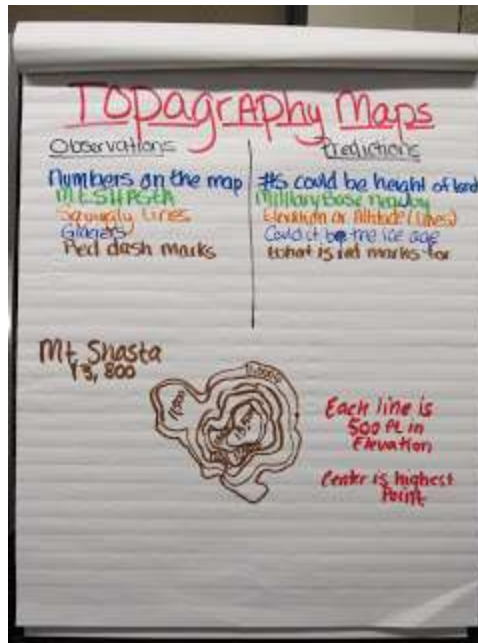 TOPAGRAPhy Maps
Observations
Predictions
Numbers on the map
Mt SHASTA
Squigly Lines
Glaciers
Red dash marks
#s could be height of land
Military Base nearby
Elevation or Altitude (Lines)
Could it be the ice age
What is red marks for
Mt Shasta
13,800
Each line is
500 ft in
Elevation
Center is highest
Point